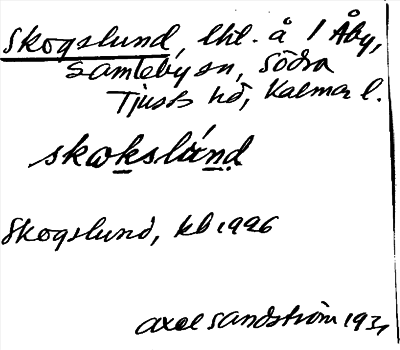 Skogslund, lht. å 1 Åby,
Samtebyen, Södra
Tjusts hd, Kalmar l.
skokslúnd
Skogslund, kb 1996
Axel Sandström 193